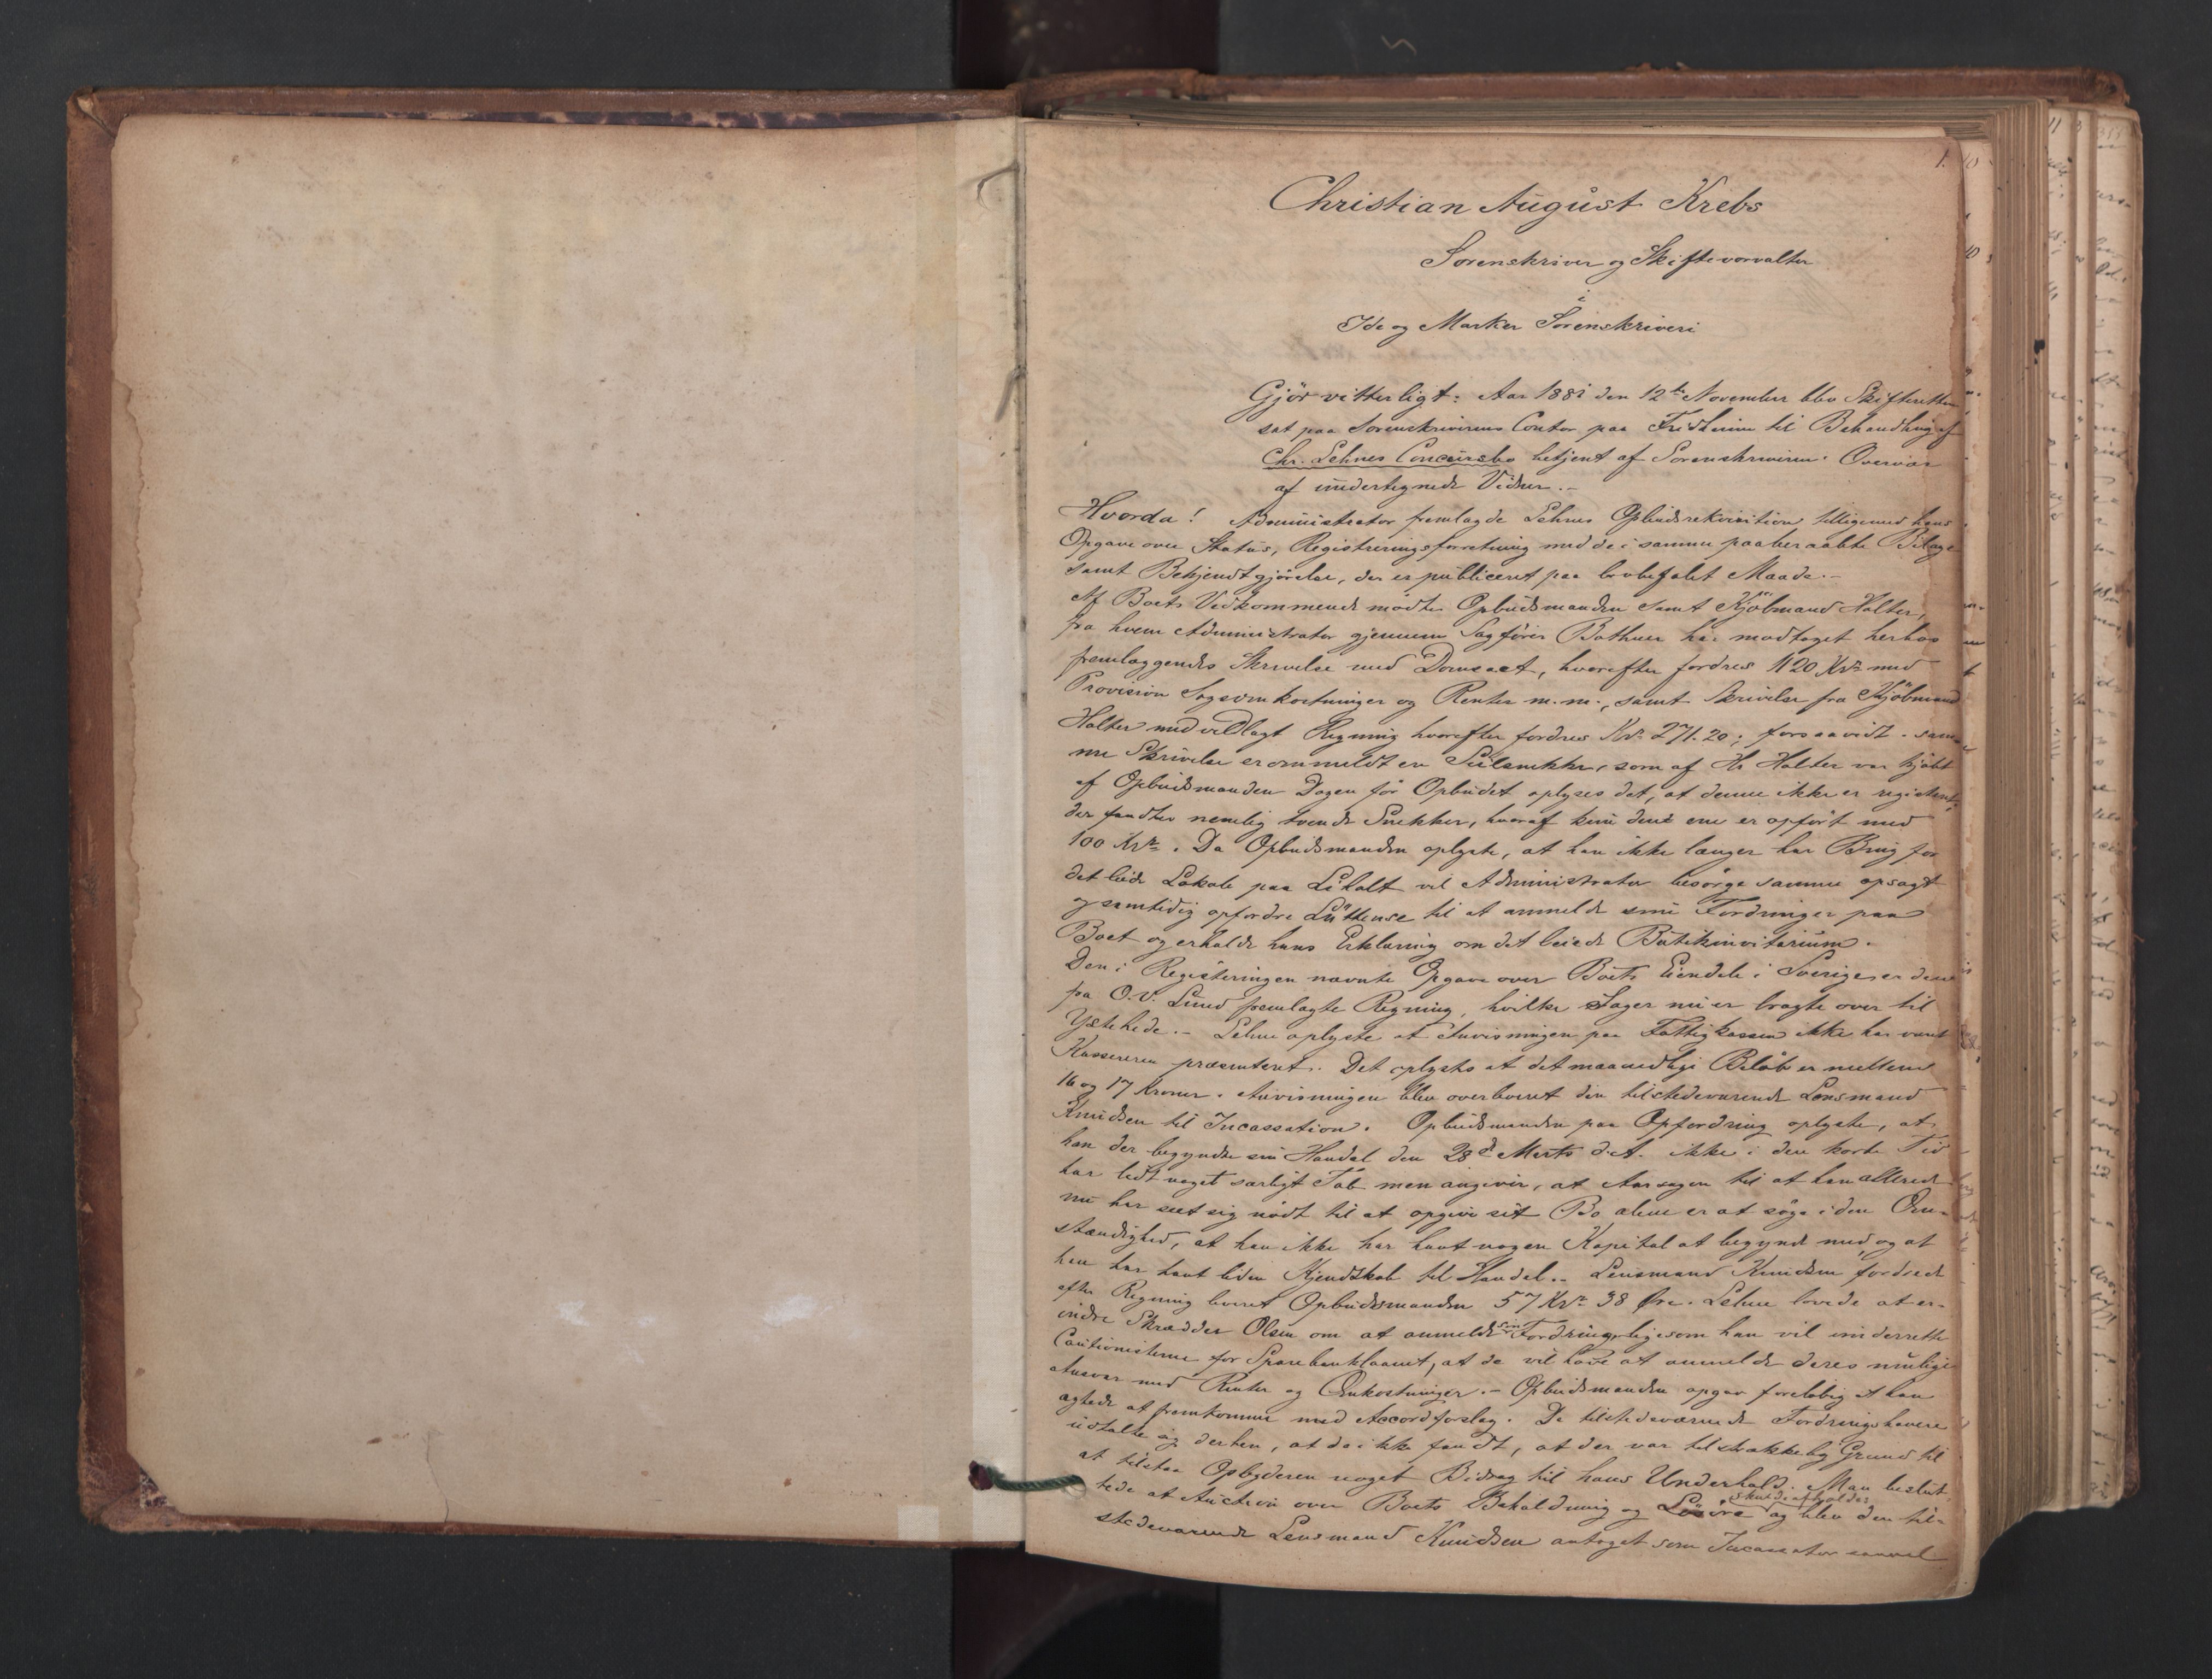 1.
Christian August Krebs
Sorenskriver og Skifteforvalter
i
Ide og Marker Sorenskriveri
Gjör vitterligt: Aar 1881 den 12te November blev Skifteretten
sat paa Sorenskriverens Contor paa Fridheim til Behandling af
Chr. Lehnes Concursbo betjent af Sorenskriveren. Overvær
af undertegnede Vidner.-
Hvorda! Administrator fremlagde Lehnes Opbudsrekvisition tilligemed hans
Opgave over Status, Registreringsforretning med de i samme paaberaabte Bilage
samt Bekjendtgjörelse, der er publiceret paa lovbefalet Maade.-
Af Boets Vedkommende mödte Opbudsmanden samt Kjöbmand Holter,
fra hvem Administrator gjennem Sagförer Bothner har modtaget herhos
fremlæggendes Skrivelse med Domsact, hvorefter fordres 1120 Kr. med
Provision Sagsomkostninger og Renter m.m., samt Skrivelse fra Kjöbmand
Holter med vedlagt Regning hvorefter fordres Kr. 271.20; forsaavidt i sam-
me Skrivelse er ommeldt en Seilsnekke, som af Hr Holter var kjöbt
af Opbudsmanden Dagen för Opbudet oplyses det, at denne ikke er registreret,
der fandtes nemlig tvende Snekker, hvoraf kun den ene er opfört med
100 Kr. Da Opbudsmanden oplyste, at han ikke længer har Brug for
det leide Lokale paa Liholt vil Administrator besörge samme opsagt
og samtidig opfordre Lüttense til at anmelde sine Fordringer paa
Boet og erholde hans Erklæring om det leiede Butikinvitarium.
Den i Registeringen nævnte Opgave over Boets Eiendele i Sverige er den
fra O.V. Lund fremlagte Regning, hvilke Sager nu er bragte over til
Ystehede.- Lehne oplyste at Anvisningen paa Fattigkassen ikke har været
Kassereren præsenteret. Det oplystes at det maanedlige Beløb er mellem
16 og 17 Kroner. Anvisningen blev overleveret den tilstedeværende Lensmand
Knudsen til Incassation. Opbudsmanden paa Opfordring oplyste, at
han der begyndte sin Handel den 28de Marts d.A. ikke i den korte Tid
har lidt noget særligt Tab men angiver, at Aarsagen til at han allerede
nu har seet sig nödt til at opgive sit Bo alene er at söge i den Om-
stændighed, at han ikke har havt nogen Kapital at begynde med og at
han har havt liden Kjendskab til Handel.- Lensmand Knudsen fordrede
efter Regning leveret Opbudsmanden 57 Kr. 38 Øre. Lehne lovede at er-
indre Skrædder Olsen om at anmelde sin Fordring, ligesom han vil underrette
Cautionisterne for Sparebanklaanet, at de vil have at anmelde deres mulige
Ansvar med Renter og Omkostninger.- Opbudsmanden opgav forelöbig at han
agtede at fremkomme med Accordforslag. De tilstedeværende Fordringshavere
udtalte sig derhen, at de ikke fandt, at der var tilstrækkelig Grund til
at tilstaa Opbyderen noget Bidrag til hans Underhold. Man beslut-
tede at Auction over Boets Beholdning og Lösöre skulde afholdes og blev den til-
stedeværende Lensmand Knudsen antaget som Incassator samt